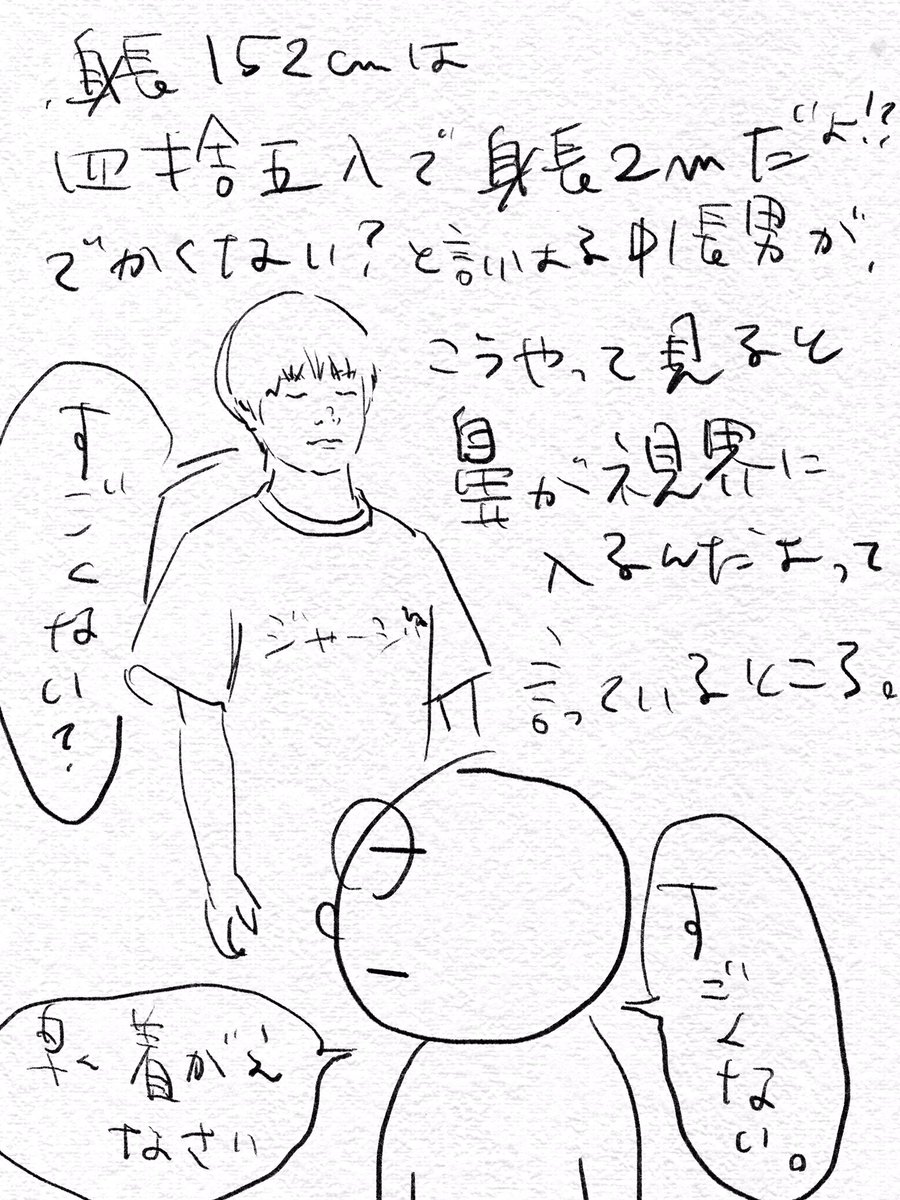 身長152cmは
四捨五入で身長2mだよ!?
でかくない?と言いはる中1長男が、
こうやって見ると
鼻が視界に
入るんだよって
言っているところ。
すごくない?
ジャージ
すごくない。
早く着がえ
なさい